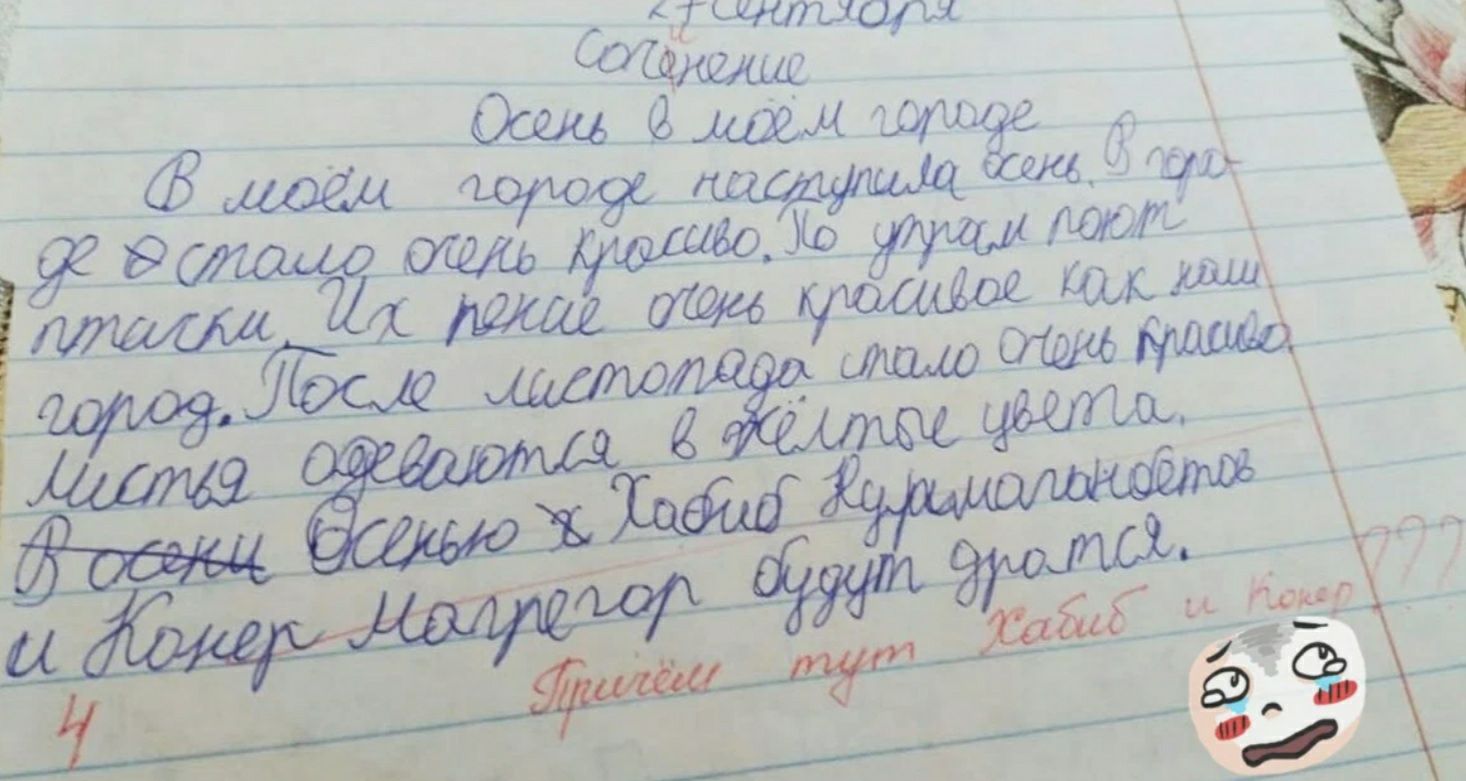 27 сентября
Соченение
и
Осень в моём городе
В моём городе наступила осень. В горо-
де стало очень красиво. По утрам поют
птички. Их пение очень красивое как наш
город. После листопада стало очень красиво.
Листья одеваются в жёлтые цвета.
В осени Осенью х Хабиб Нурмагомедов
и Конер Магрегор будут дратся.
Причём тут Хабиб и Конер???
4